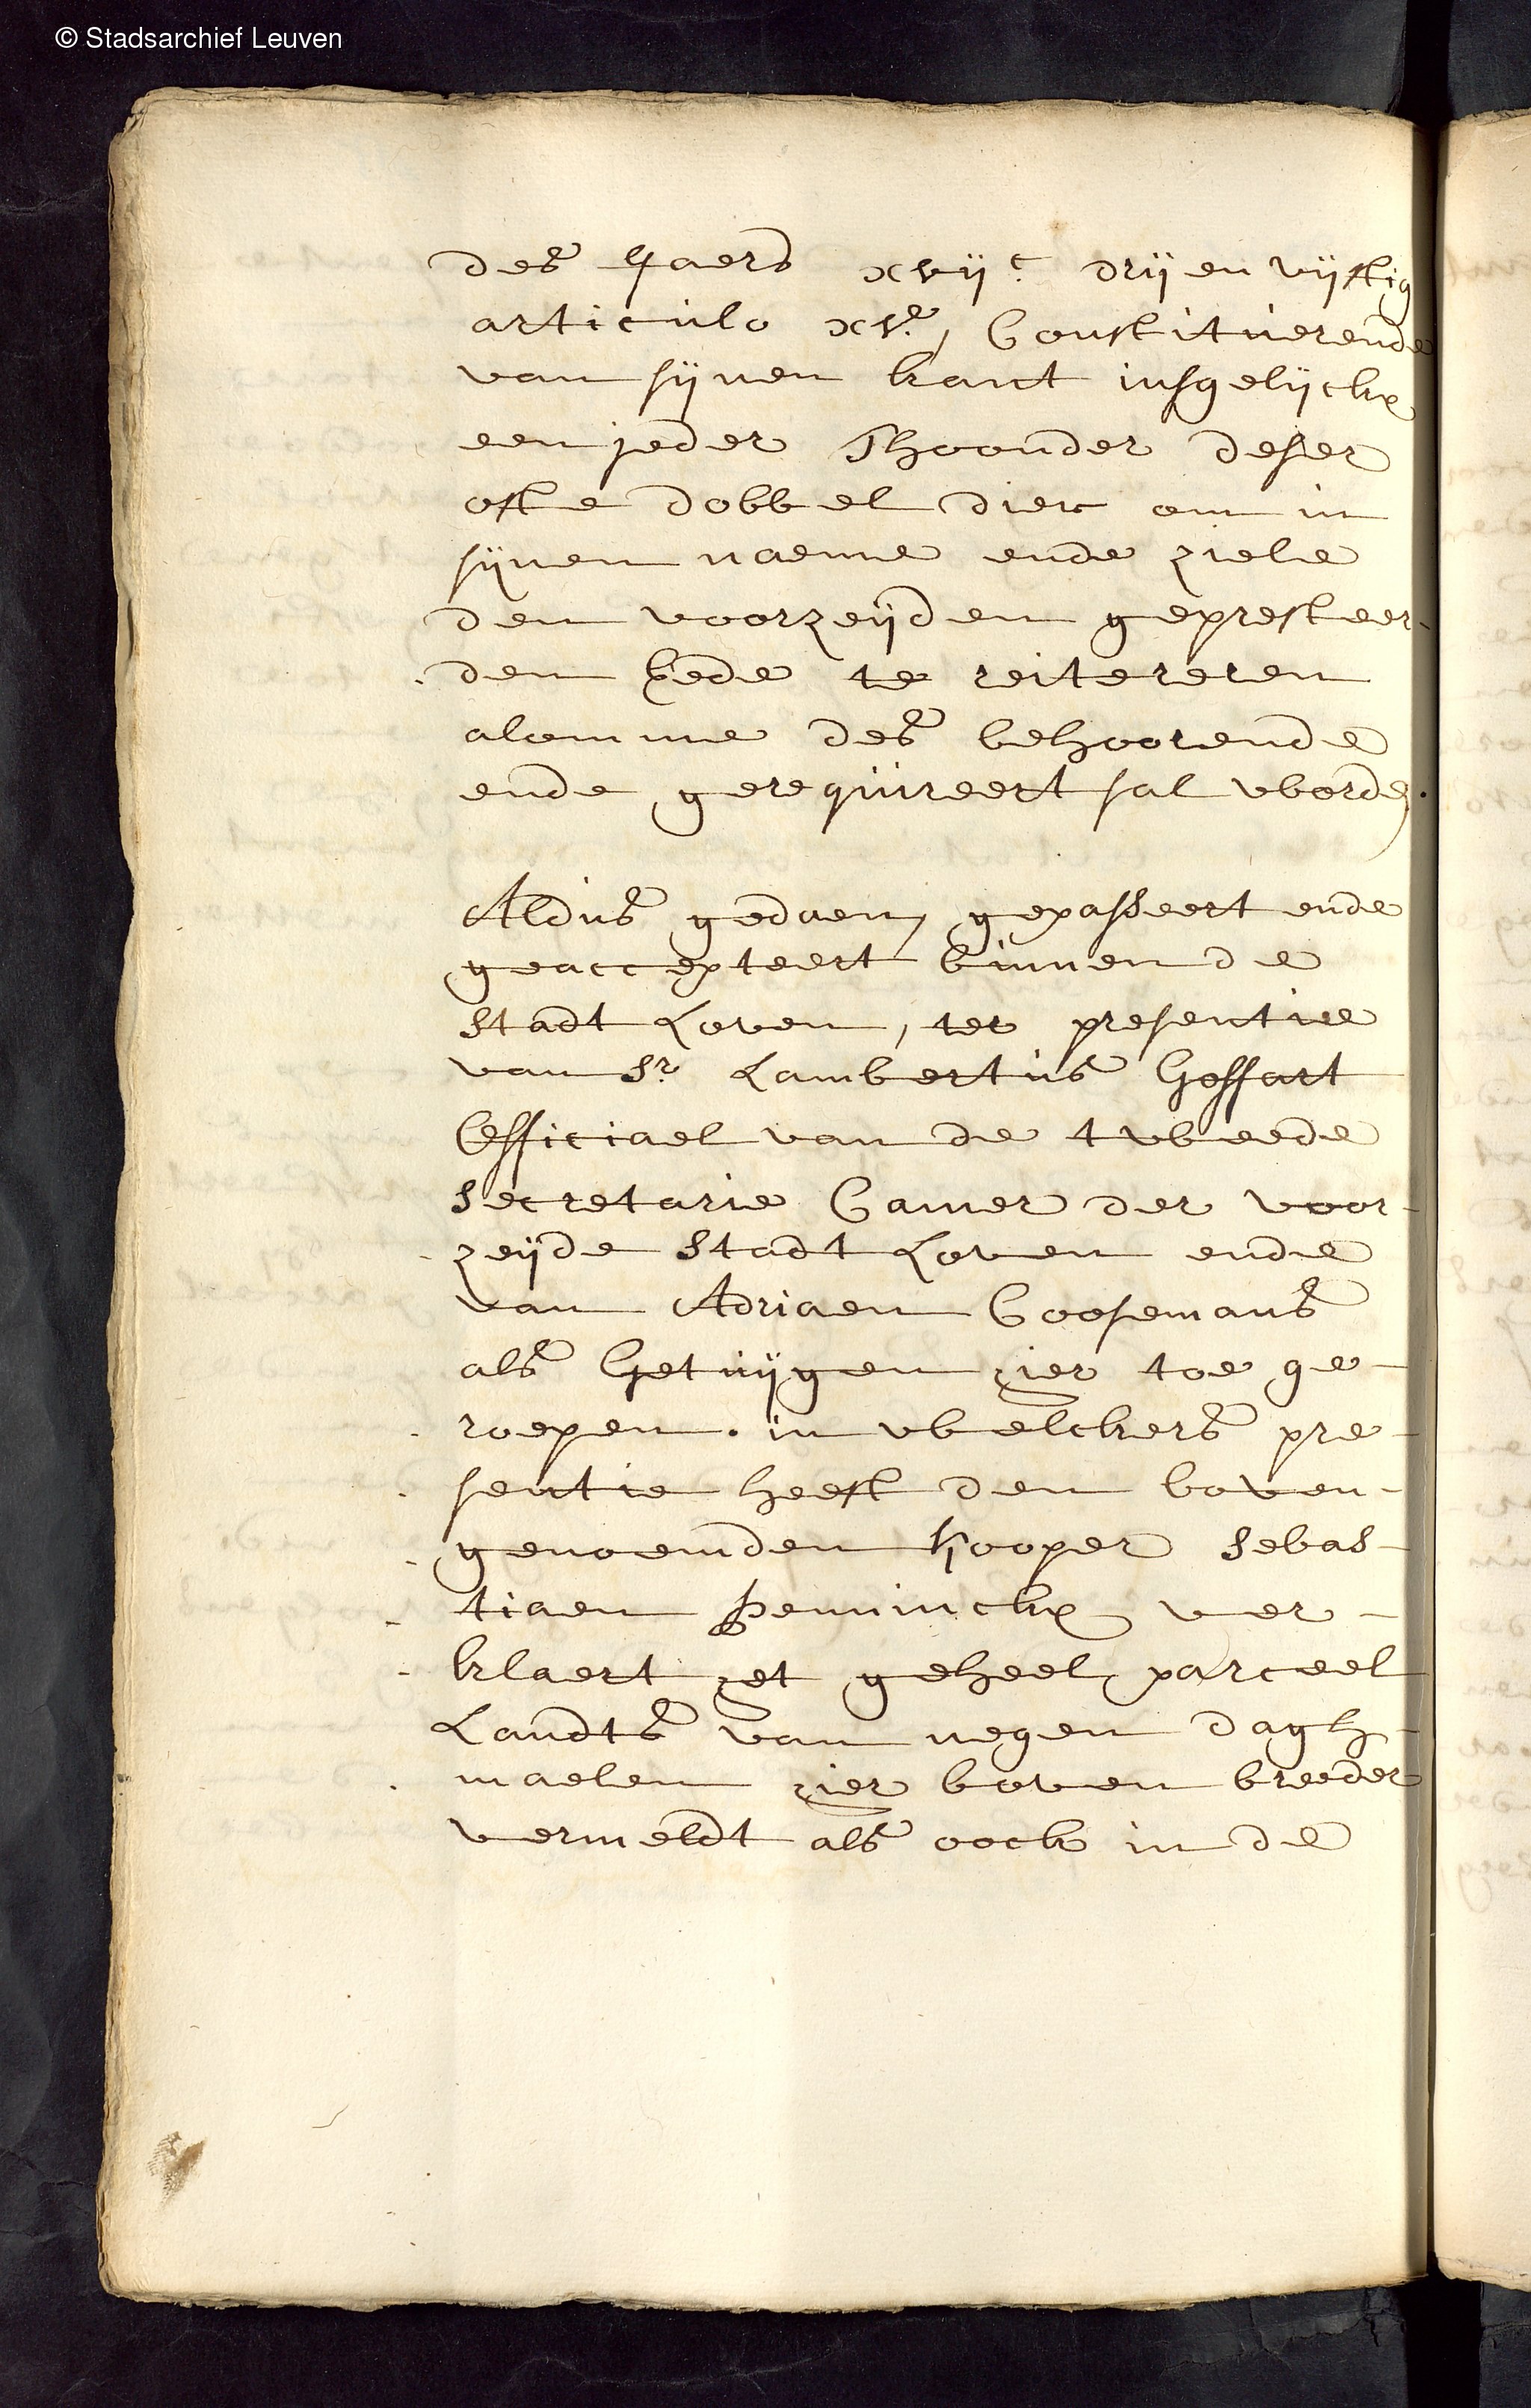 © Stadsarchief Leuven
des Jaers xvijc. drij en vijftig
articulo xve., Constituerende
van sijnen kant insgelijckx
een jeder Thoonder deser
ofte dobbel dier om in
sijnen naeme ende ziele
den voorzeijden gepresteer-
den Eede te reitereren
alomme des behoorende
ende gerequireert sal worden.
Aldus gedaen, gepasseert ende
geaccepteert binnen de
Stadt Loven, ter presentie
van Sr. Lambertus Goffart
Officiael van de tweede
Secretarie Camer der voor-
zeijde Stadt Loven ende
van Adriaen Coosemans
als Getuijgen hier toe ge-
roepen. in welckers pre-
sentie heeft den boven-
genoemden Kooper Sebas-
tiaen Penninckx ver-
klaert het geheel parceel
Landts van negen dagh-
maelen hier boven breeder
vermeldt als oock in de